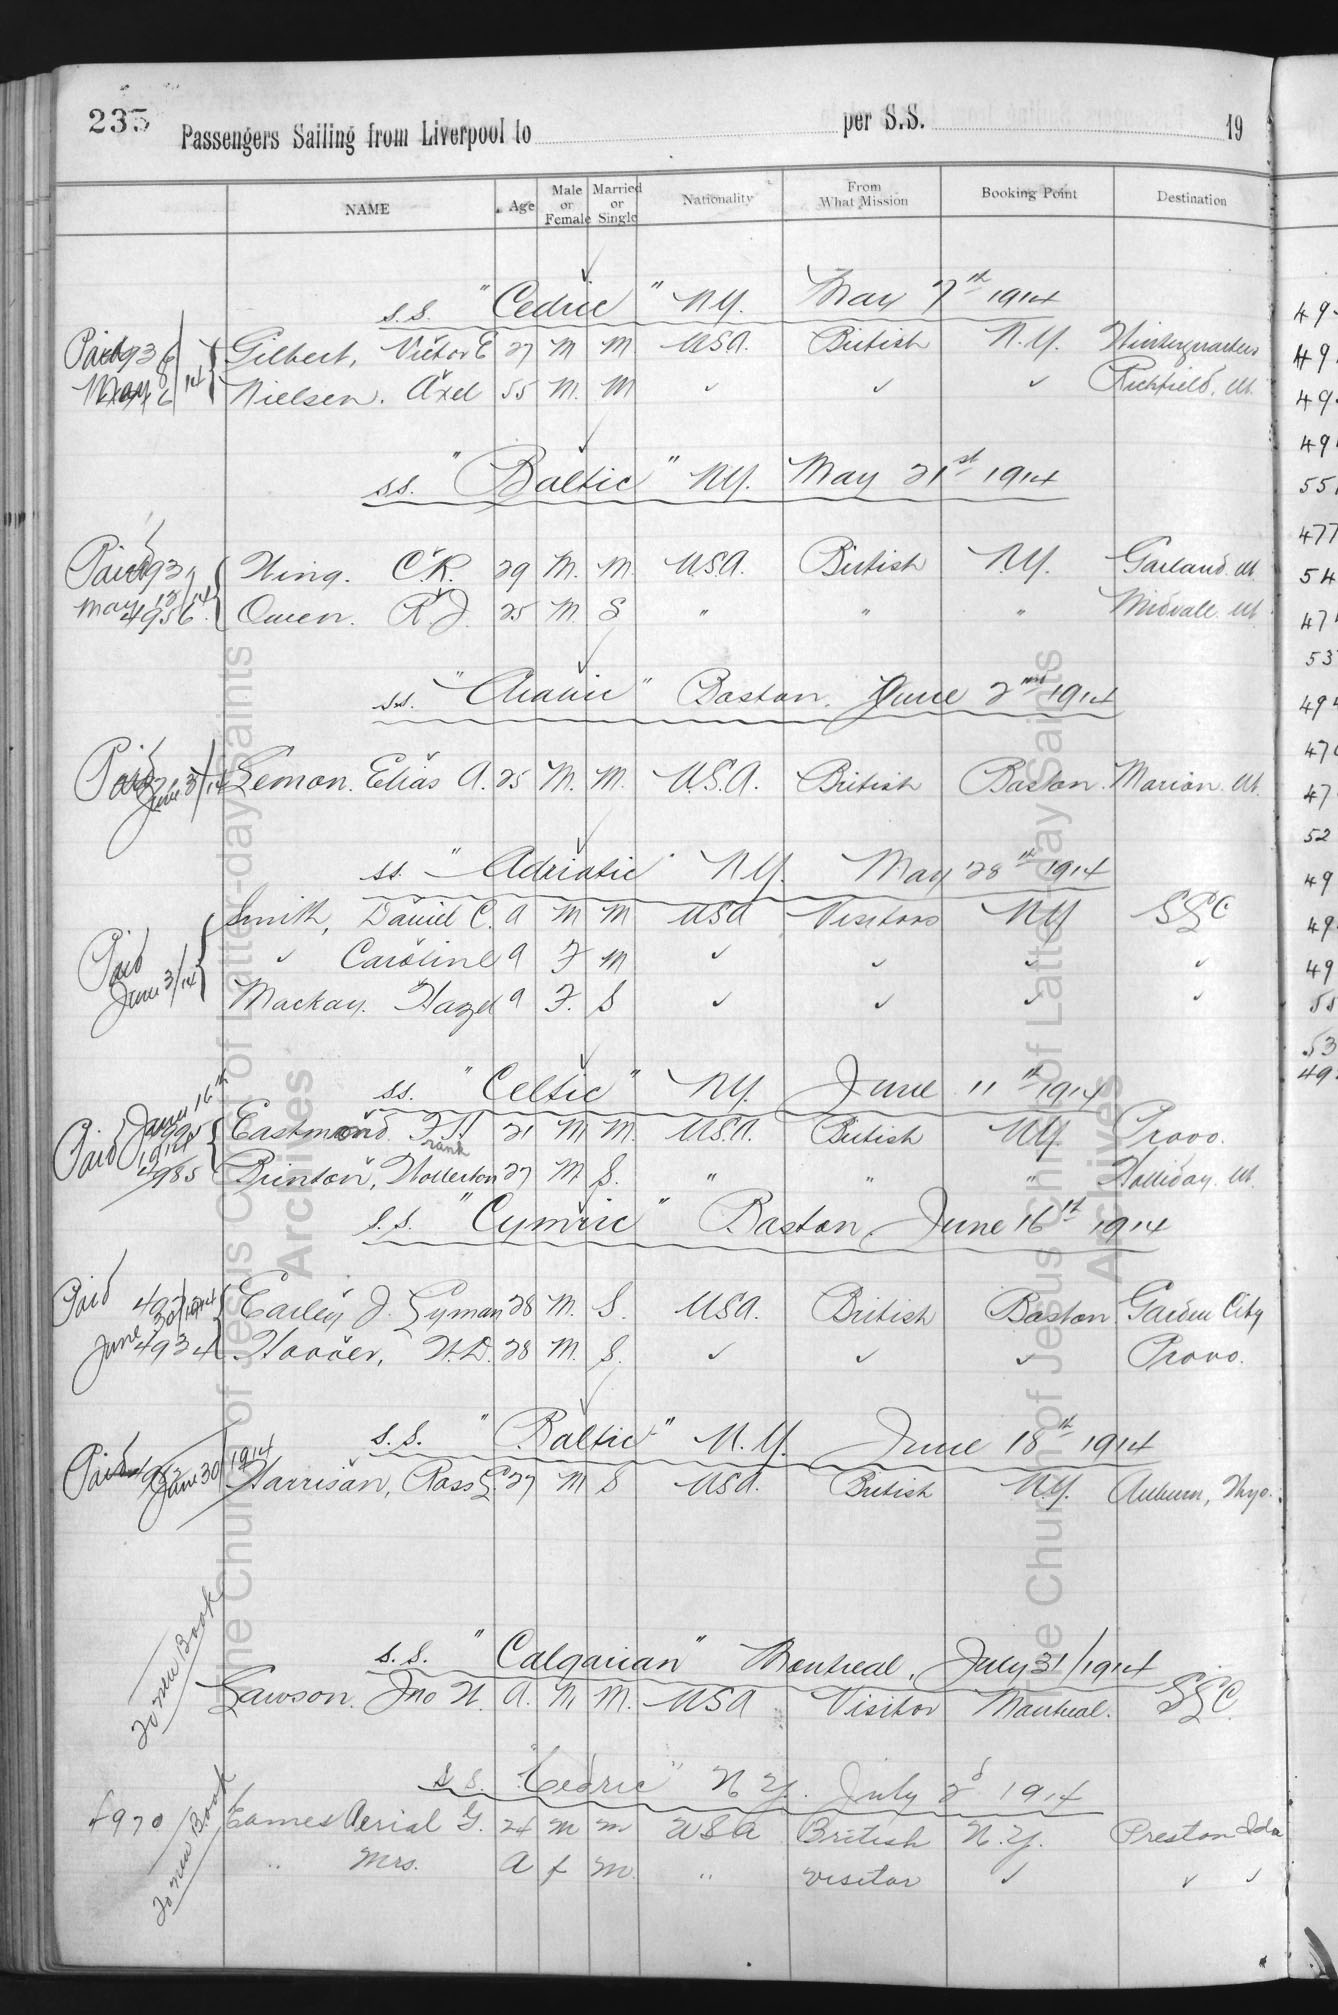 235
Passengers Sailing from Liverpool to per S.S. 19
NAME Age Male or Female Married or Single Nationality From What Mission Booking Point Destination
s.s. "Cedric" N.Y. May 7th 1914
Gilbert, Victor E 27 M M USA. British N.Y. Winterquarters
May 6/14 Nielsen. Axel 55 M. M ✓ ✓ ✓ Richfield, Ut.
ss. "Baltic" N.Y. May 21st 1914
Paid Wing. C.R. 29 M. M. USA. British N.Y. Garland. Ut
4956 Owen. R.J. 25 M. S " " " Midvale. Ut
ss. "Arabic" Boston. June 2nd 1914
Paid June 3/14 Lemon. Elias A. 25 M. M. U.S.A. British Boston. Marion. Ut.
ss. "Adriatic" N.Y. May 28th 1914
Smith, Daniel C. A M M USA Visitors NY SLC
Paid ✓ Caroline A F M ✓ ✓ ✓ ✓
June 3/14 Mackay. Hazel A F. S ✓ ✓ ✓ ✓
ss. "Celtic" N.Y. June 11th 1914
June 16th 1914
Paid Eastmond. F.H. 21 M M. U.S.A. British N.Y. Provo.
rank
4985 Brinton, Wollerton 27 M S. " " " Holliday. Ut.
s.s. "Cymric" Boston. June 16th 1914
Paid June 30/1914 Earley J. Lyman 28 M. S. USA. British Boston Garden City
4934 Hoover, W.D. 28 M. S. ✓ ✓ ✓ Provo.
s.s. "Baltic" N.Y. June 18th 1914
Paid June 30/1914 Harrison, Ross L. 27 M S USA. British N.Y. Auburn, Wyo.
To new Book
s.s. "Calgarian" Montreal. July 31/1914
Lawson. Jno W. A. M M. USA Visitor Montreal. SLC.
s s. "Cedric" N Y. July 2d 1914
4970 Eames Aerial G. 24 m m USA British N.Y. Preston Ida
To new Book
" Mrs. A f m. " visitor ✓ ✓ ✓
The Church of Jesus Christ of Latter-day Saints
Archives
The Church of Jesus Christ of Latter-day Saints
Archives